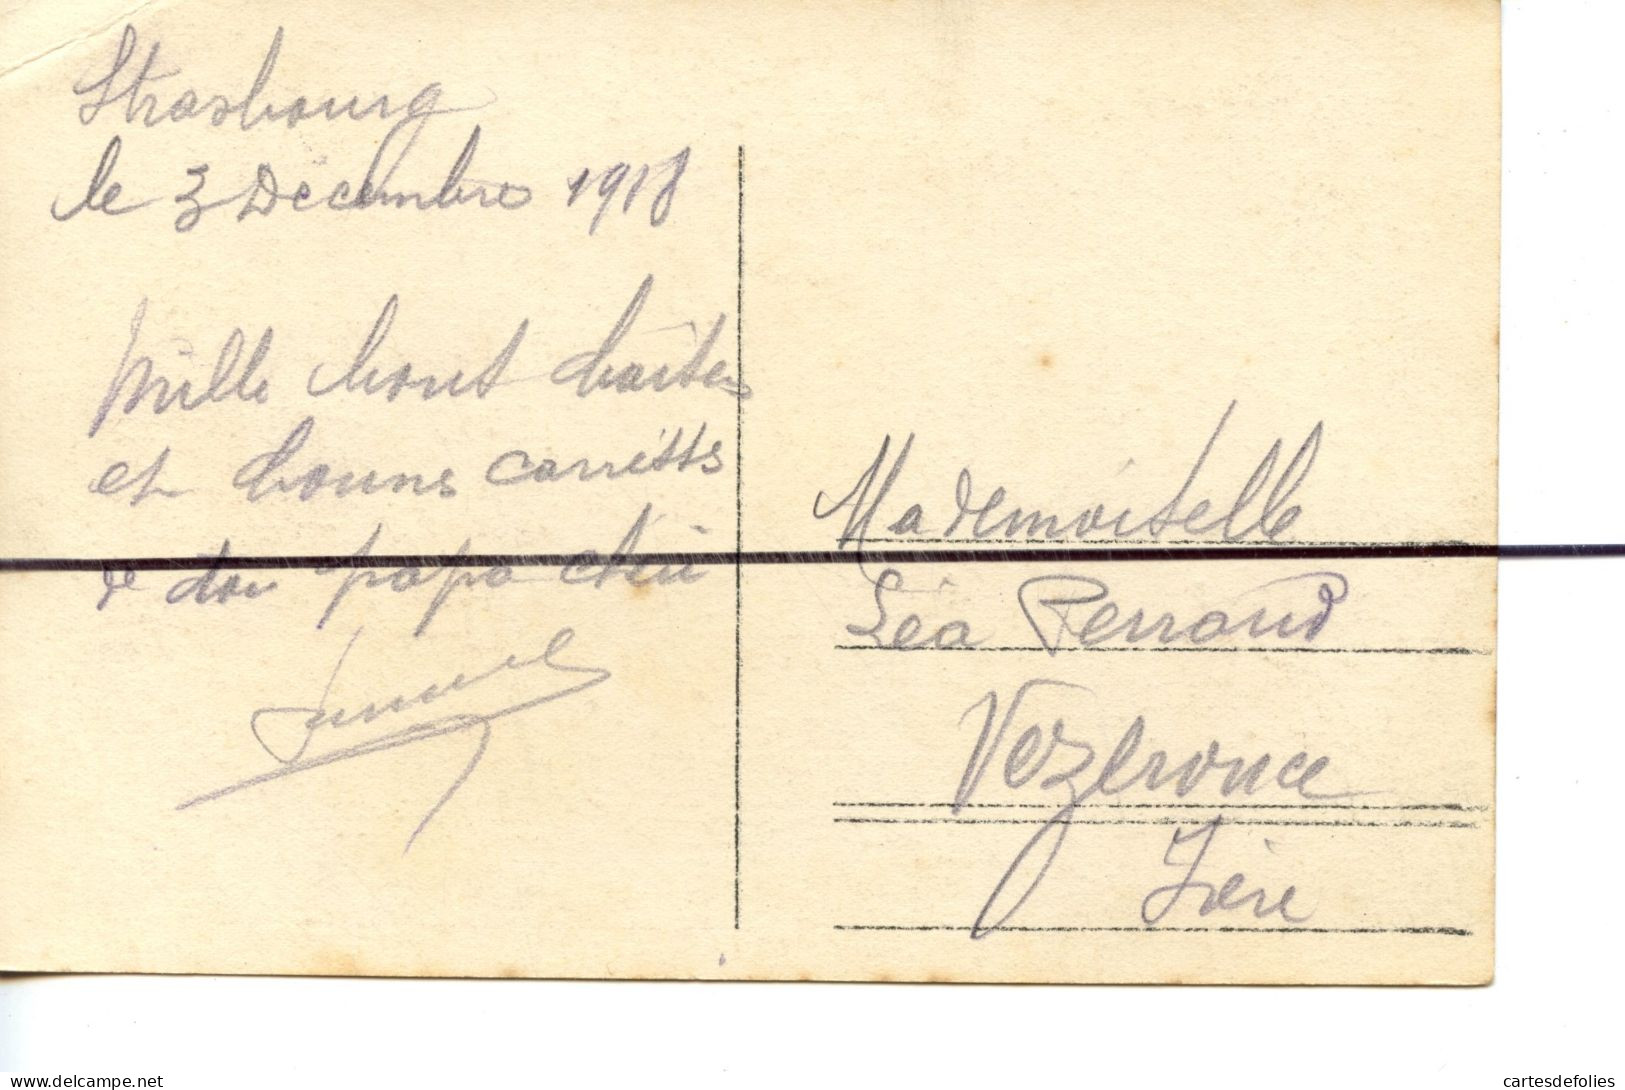 Strasbourg
le 3 Décembre 1918
Mille bont baiser
et bouns carresses
de ton papa chéri
Mademoiselle
Léa Perraud
Vezeronce
Isère
cartesdefolies